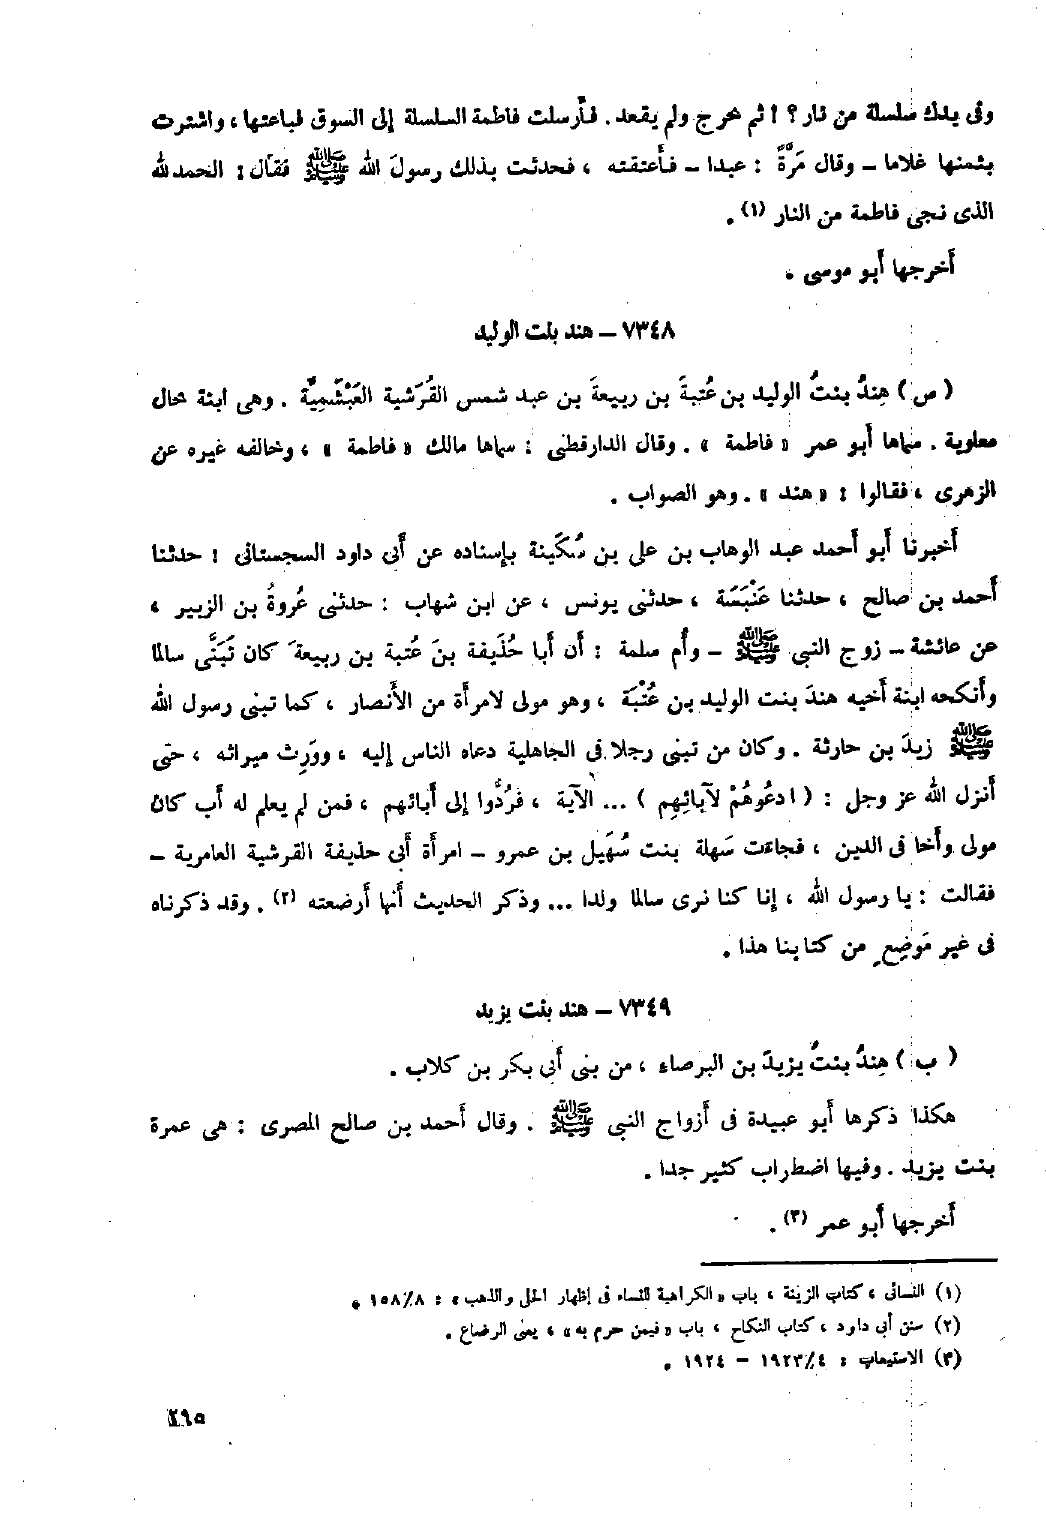 وفى يدك سلسلة من نار ؟ ! ثم خرج ولم يقعد . فأرسلت فاطمة السلسلة إلى السوق فباعتها ، واشترت
بثمنها غلاما – وقال مَرَّةً : عبدا – فأعتقته ، فحدثت بذلك رسولَ الله ﷺ فقال : الحمد لله
الذى نجى فاطمة من النار (١) .
أخرجها أبو موسى .
٧٣٤٨ – هند بنت الوليد
( س ) هِندُ بنتُ الوليد بن عُتبةَ بن ربيعةَ بن عبد شمس القُرَشية العَبْشَمِيَّة . وهى ابنة خال
معاوية . سماها أبو عمر « فاطمة » . وقال الدارقطنى : سماها مالك « فاطمة » ، وخالفه غيره عن
الزهرى ، فقالوا : « هند » . وهو الصواب .
أخبرنا أبو أحمد عبد الوهاب بن على بن سُكَينة بإسناده عن أبى داود السجستانى : حدثنا
أحمد بن صالح ، حدثنا عَنْبَسَة ، حدثنى يونس ، عن ابن شهاب : حدثنى عُروةُ بن الزبير ،
عن عائشة – زوج النبى ﷺ – وأم سلمة : أن أبا حُذَيفة بنَ عُتبة بن ربيعةَ كان تَبَنَّى سالما
وأنكحه ابنة أخيه هندَ بنت الوليد بن عُتْبَة ، وهو مولى لامرأة من الأنصار ، كما تبنى رسول الله
ﷺ زيدَ بن حارثة . وكان من تبنى رجلا فى الجاهلية دعاه الناس إليه ، وورِث ميراثه ، حتى
أنزل الله عز وجل : ( ادعُوهُمْ لآبائِهِم ) ... الآية ، فرُدُّوا إلى أبائهم ، فمن لم يعلم له أب كان
مولى وأخا فى الدين ، فجاءت سَهلة بنت سُهَيل بن عمرو – امرأة أبى حذيفة القرشية العامرية –
فقالت : يا رسول الله ، إنا كنا نرى سالما ولدا ... وذكر الحديث أنها أرضعته (٢) . وقد ذكرناه
فى غير مَوضِعٍ من كتابنا هذا .
٧٣٤٩ – هند بنت يزيد
( ب ) هِندُ بنتُ يزيدَ بن البرصاء ، من بنى أبى بكر بن كلاب .
هكذا ذكرها أبو عبيدة فى أزواج النبى ﷺ . وقال أحمد بن صالح المصرى : هى عمرة
بنت يزيد . وفيها اضطراب كثير جدا .
أخرجها أبو عمر (٣) .
(١) النسائى ، كتاب الزينة ، باب « الكراهية للنساء فى إظهار الحلى والذهب » : ٨/١٥٨ .
(٢) سنن أبى داود ، كتاب النكاح ، باب « فيمن حرم به » ، يعنى الرضاع .
(٣) الاستيعاب : ٤/١٩٢٣ – ١٩٢٤ .
٢٩٥